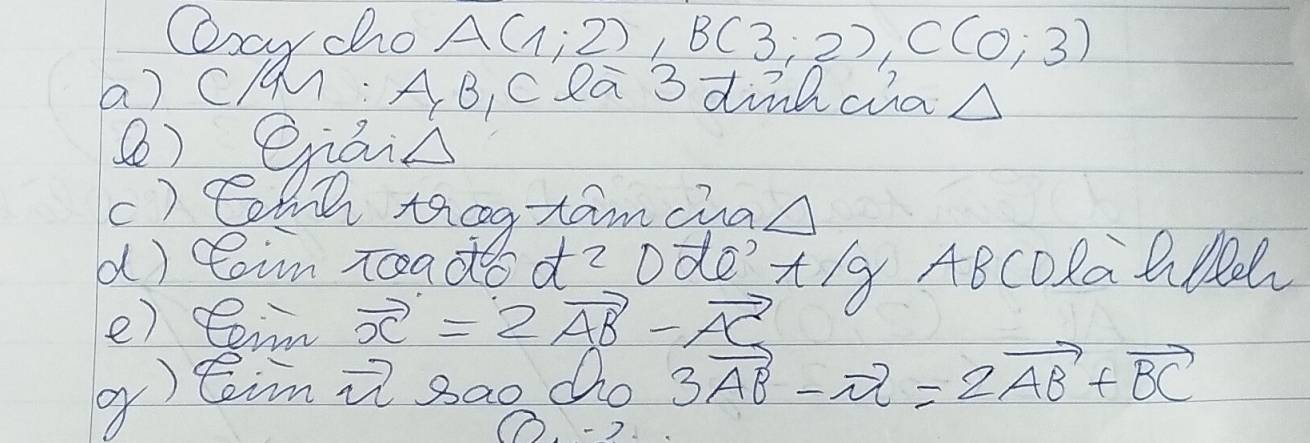 Oxy cho A(1;2), B(3;2), C(0;3)
a) C/M : A, B, C là 3 đỉnh của △
b) Giải △
c) Tính trọg tâm của △
d) Tìm toạ độ d² D để t/g ABCD là h//bh
e) Tìm \vec{x} = 2\vec{AB} - \vec{AC}
g) Tìm \vec{u} sao cho 3\vec{AB} - \vec{u} = 2\vec{AB} + \vec{BC}